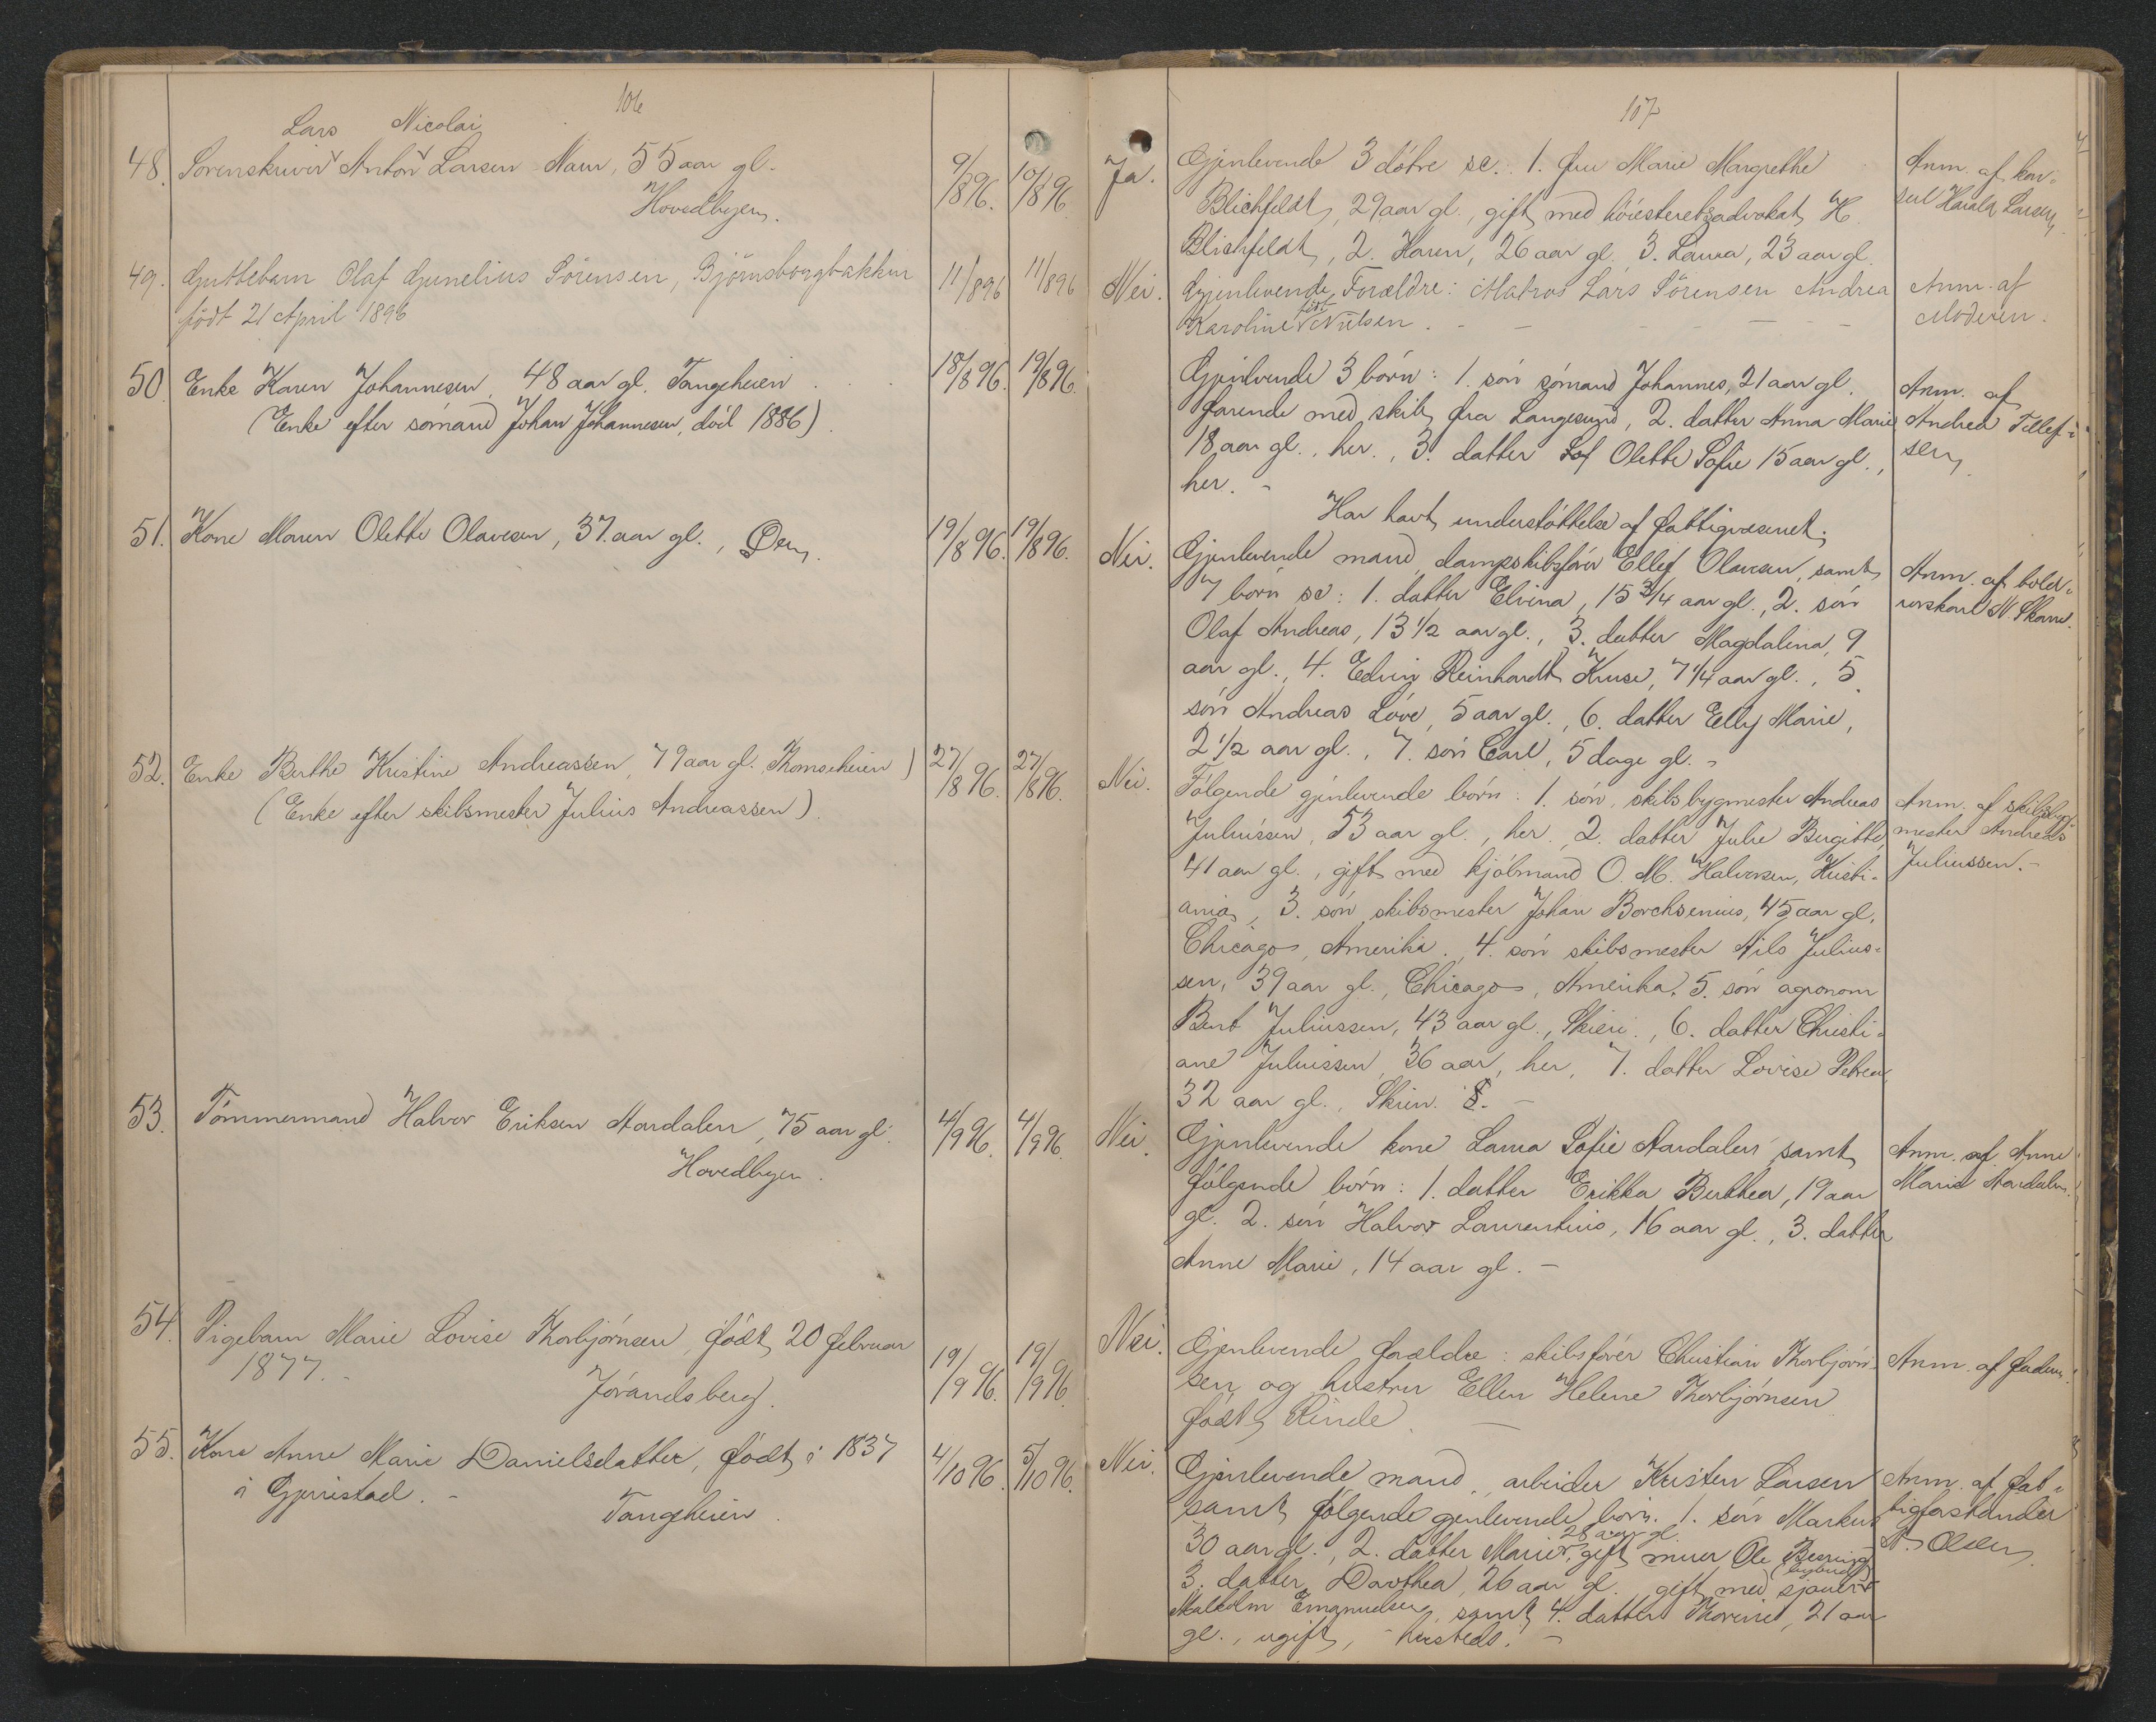 106
Lars Nicolai
48. Sorenskriver Anton Larsen Naur, 55 aar gl.
Hovedbyen.
9/8 96. 10/8 96.
49. Guttebarn Olaf Gunelius Sörensen, Björnsborgbakken
födt 21 April 1896
11/8 96 11/8 96
50. Enke Karen Johannesen, 48 aar gl. Tangeheien
(Enke efter sömand Johan Johannesen, död 1886).
18/8 96. 19/8 96.
51. Kone Maren Olette Olavesen, 37 aar gl., Öen.
19/8 96. 19/8 96.
52. Enke Berthe Kristine Andreassen, 79 aar gl. Thomseheien)
(Enke efter skibsmester Julius Andreassen).
27/8 96. 27/8 96.
53. Tömmermand Halvor Eriksen Aardalen, 75 aar gl.
Hovedbyen.
4/9 96. 4/9 96.
54. Pigebarn Marie Lovise Thorbjörnsen, födt 20 februar
1877. -
Jörandsberg.
19/9 96. 19/9 96
55. Kone Anne Marie Danielsdatter, födt i 1837
i Gjerrestad. -
Tangeheien.
4/10 96. 5/10 96.
107
Ja. Gjenlevende 3 dötre sc.: 1. fru Marie Margrethe
Blichfeldt, 29 aar gl., gift med höiesteretsadvokat H.
Blichfeldt, 2. Karen, 26 aar gl., 3. Laura, 23 aar gl.
Anm. af kon-
sul Harald Larsen
Nei. Gjenlevende Forældre: Matros Lars Sörensen Andrea
Karoline födt Nilsen. -
Anm. af
Moderen.
Gjenlevende 3 börn: 1. sön sömand Johannes, 21 aar gl.
farende med skib fra Langesund, 2. datter Anna Marie
18 aar gl., her., 3. datter Sof Olette Sofie 15 aar gl.,
her. -
Har havt understöttelse af fattigvæsenet.
Anm. af
Andrea Tellef-
sen
Nei. Gjenlevende mand, dampskibsförer Ellef Olavesen, samt
7 börn sc: 1. datter Elvina, 15 3/4 aar gl., 2. sön
Olaf Andreas, 13 1/2 aar gl., 3. datter Magdalina, 9
aar gl., 4. Edvin Reinhardt Kruse, 7 1/4 aar gl., 5.
sön Andreas Löve, 5 aar gl., 6. datter Elly Marie,
2 1/2 aar gl., 7. sön Carl, 5 dage gl. -
Anm. af
N.
Nei. Fölgende gjenlevende börn: 1. sön, skibsbygmester Andreas
Juliussen, 53 aar gl., her., 2. datter Julie Birgitte,
41 aar gl., gift med kjöbmand O. M. Halvorsen, Kristi-
ania, 3. sön skibsmester Johan Borchsenius, 45 aar gl.
Chicago, Amerika., 4. sön skibsmester Nils Julius-
sen, 39 aar gl., Chicago, Amerika, 5. sön agronom
Bent Juliussen, 43 aar gl., Skien., 6. datter Christi-
ane Juliussen, 36 aar, her, 7. datter Lovise Petrea,
32 aar gl., Skien. 8. -
Anm. af skibsbyg-
mester Andreas
Juliussen. -
Nei. Gjenlevende kone Laura Sofie Aardalen samt
fölgende börn: 1. datter Erikka Berthea, 19 aar
gl. 2. sön Halvor Laurentius, 16 aar gl., 3. datter
Anne Marie, 14 aar gl. -
Anm. af Anne
Marie Aardalen.
Nei. Gjenlevende forældre: skibsförer Christian Thorbjörn-
sen og hustru Ellen Helene Thorbjörnsen
födt Rinde. -
Anm. af faderen.
Nei. Gjenlevende mand, arbeider Kristen Larsen
samt fölgende gjenlevende börn. 1. sön Markus
30 aar gl., 2. datter Marie, 28 aar gl. gift murer Ole
3. datter Dorthea, 26 aar gl., gift med sjauer
Malkolm Emanuelsen, samt 4. datter Thorine, 21 aar
gl., ugift, hersteds. -
Anm. af fat-
tigforstander
Olsen